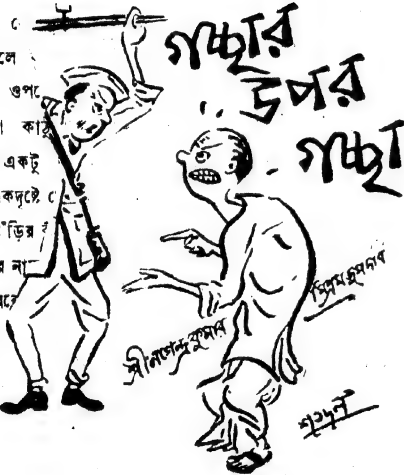 লে
ওপ
কা
একটু
একদৃষ্টে
ড়ির
র না
গচ্ছার
উপর
গচ্ছা
শ্রীনগেন্দ্রকুমার
মিত্রমজুমদার